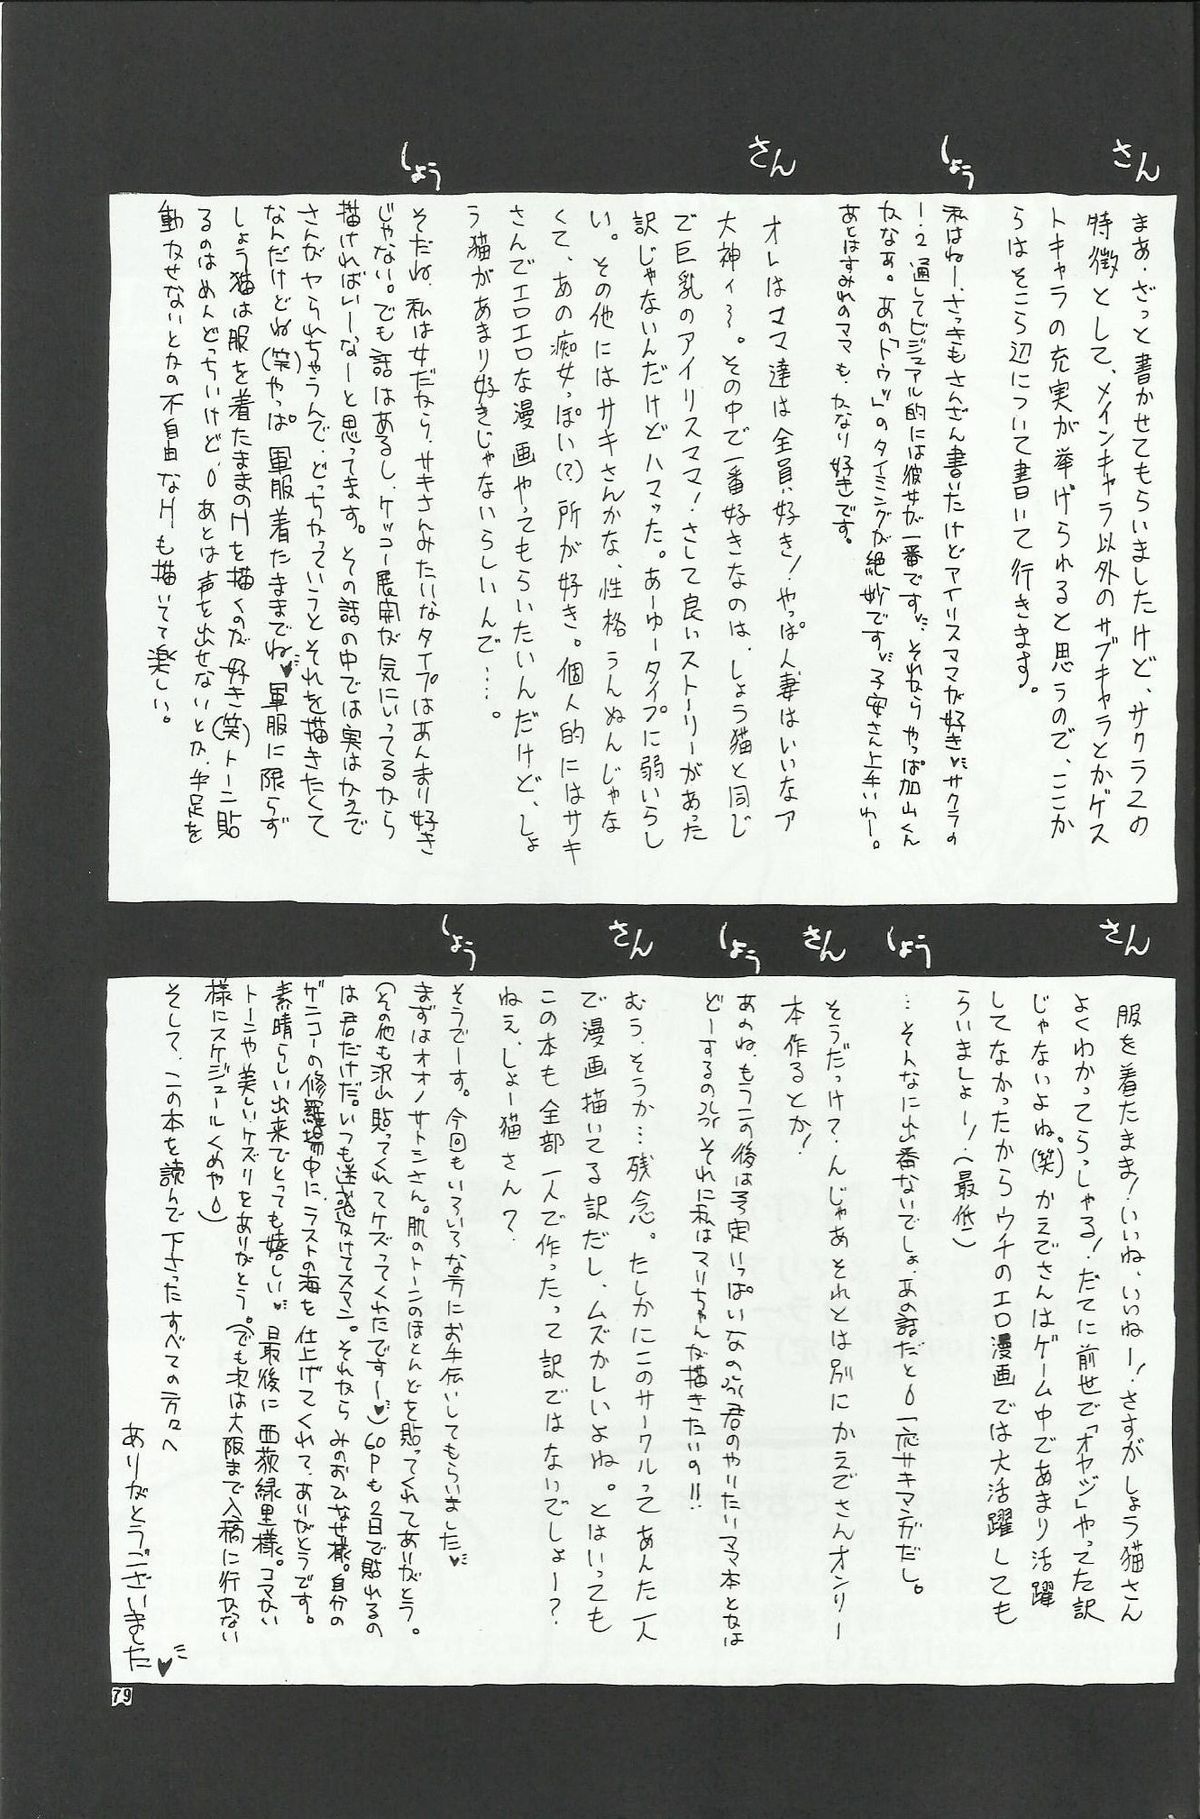 さん
まあ、ざっと書かせてもらいましたけど、サクラ2の
特徴として、メインキャラ以外のサブキャラとかゲス
トキャラの充実が挙げられると思うので、ここか
らはそこら辺について書いて行きます。
しょう
私はねー、さっきもさんざん書いたけどアイリスママが好き♥サクラの
1・2通してビジュアル的には彼女が一番です♥それならやっぱ加山くん
かなあ。あの「トウッ」のタイミングが絶妙です♥子安さん上手いわー。
あとはすみれのママも、かなり好きです。
さん
オレはママ達は全員好き!やっぱ人妻はいいなァ
大神ィ〜。その中で一番好きなのは、しょう猫と同じ
で巨乳のアイリスママ!さして良いストーリーがあった
訳じゃないんだけどハマった。あーゆータイプに弱いらし
い。その他にはサキさんかな、性格うんぬんじゃな
くて、あの痴女っぽい(?)所が好き。個人的にはサキ
さんでエロエロな漫画やってもらいたいんだけど、しょ
う猫があまり好きじゃないらしいんで…。
しょう
そだね、私は女だから、サキさんみたいなタイプはあんまり好き
じゃない。でも話はあるし、ケッコー展開が気にいってるなら
描ければいーなーと思ってます。その話の中では実はかえで
さんがヤられちゃうんで、どっちかっていうとそれを描きたくて
なんだけどね(笑)やっぱ軍服着たままでね♥軍服に限らず
しょう猫は服を着たままのHを描くのが好き(笑)トーン貼
るのはめんどっちいけど、あとは声を出せないとか、手足を
動かせないとかの不自由なHも描いてて楽しい。
さん
服を着たまま!いいね、いいねー!さすがしょう猫さん
よくわかってらっしゃる!だてに前世で「オヤジ」やってた訳
じゃないよね。(笑)かえでさんはゲーム中であまり活躍
してなかったからウチのエロ漫画では大活躍しても
らいましょー!(最低)
しょう
…そんなに出番ないでしょ、あの話だと 一応サキマンガだし。
さん
そうだっけ?んじゃあそれとは別にかえでさんオンリー
本作るとか!
しょう
あのね、もうこの後は予定いっぱいなの 君のやりたいママ本とかは
どーするの それに私はマリちゃんが描きたいの!!
さん
むう、そうか…残念。たしかにこのサークルってあんた一人
で漫画描いてる訳だし、ムズかしいよね。とはいっても
この本も全部一人で作ったって訳ではないでしょー?
ねえ、しょー猫さん?
しょう
そうでーす。今回もいろいろな方にお手伝いしてもらいました♥
まずはオオノサトシさん。肌のトーンのほとんどを貼ってくれてありがとう。
(その他も沢山貼ってくれてケズってくれたですー♥)60Pも2日で貼れるの
は君だけだ。いつも迷惑かけてスマン。それからみのおひなせ様。自分の
ゲンコーの修羅場中に、ラストの海を仕上げてくれて、ありがとうです。
素晴らしい出来でとっても嬉しい♥最後に西荻緑里様。コマない
トーンや美しいケズリをありがとう。(でも次は大阪まで入稿に行かない
様にスケジュールくめや)
そして、この本を読んで下さったすべての方々へ
ありがとうございました♥
79